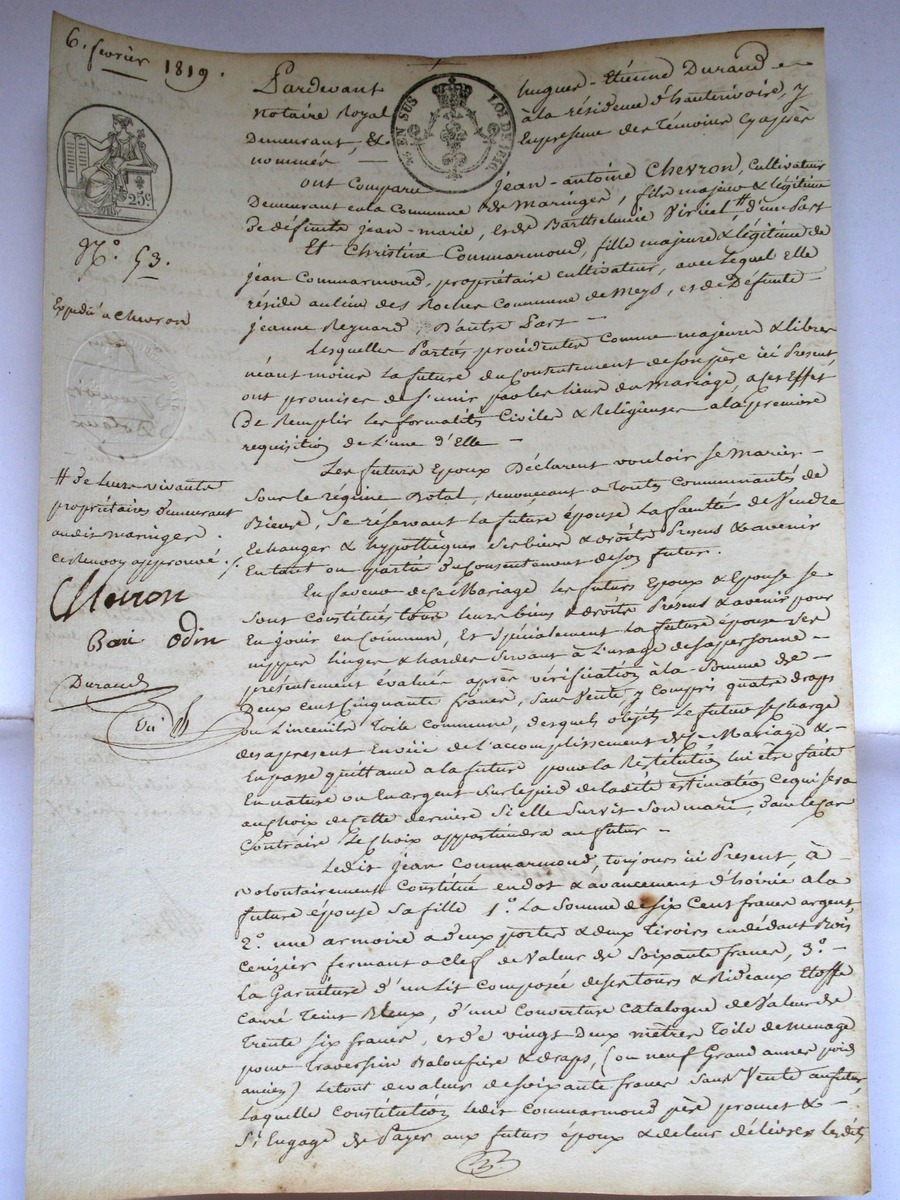 6. fevrier 1819.
Pardevant hugues-Etienne Durand
Notaire Royal à la résidence d'hauterivoire, y
Demeurant, & En présence des Témoins Cy après
nommés —
EN SUS LOI DE 1816.
25c
N.º 53.
Expédié a chevron
ont Comparu Jean-antoine Chevron, Cultivateur
Demeurant en la Commune de Maringes, fils majeur & légitime
de défunte Jean-marie, et de Barthelmie Viricel # d'une Part
Et Christine Commarmond, fille majeure & légitime de
jean Commarmond, propriétaire cultivateur, avec Lequel Elle
réside au lieu des Roches Commune de Meys, et de Défunte
jeanne Reynard, D'autre Part —
Lesquelles Parties procédentes Comme majeures & libres
néant moins La future du Consentement de son père ici Present
ont promises de S'unir par les liens du Mariage, a Cet Effet
De Remplir Les formalités Civiles & Religieuses a la première
requisition de L'une d'Elle —
Les futurs Epoux Déclarent vouloir Se Marier
Sous le régime Dotal, renoncent a Toutes Communautés de
Biens, Se réservant La future épouse La faculté de Vendre
Echanger & hypothèquer Ses biens & droits Présens & avenir
En tout ou partie du Consentement de Son futur.
# De Leurs vivants
propriétaires demeurant
audit maringes.
ce renvoy approuvé
Chevron
Bari Odin
Durand
En faveur de Ce Mariage les futurs Epoux & Epouse Se
Sont Constitués tous leurs biens & droits Présens & avenir pour
En jouir en Commun, Et Spécialement La future épouse Ses
nippes linges & hardes Servant à L'usage de Sa personne
présentement évalués après vérification à la Somme de
Deux Cent Cinquante francs, Sans Vente y Compris quatre draps
ou Linceuils Toile Commune, desquels objets Le futur Se charge
des apresent En vüe de l'accomplissement de Ce Mariage &
En passe quittance a la future pour la Restitution lui être faite
En nature ou En argent Sur le pied de la dite estimation Ce qui Sera
au choix de Cette derniere Si elle Survit Son mari, dans le Cas
Contraire Le Choix appartiendra au futur —
Ledit Jean Commarmond, toujours ici Présent, à
volontairement Constitué en dot & avancement d'hoirie a la
future épouse Sa fille 1º. La Somme de Six Cent francs argent,
2º. une armoire a deux portes & deux tiroirs en dedant Bois
Cerizier fermant a clef de Valeur de Soixante francs, 3º.
La Garniture d'un Lit Composée de Ses tours & Rideaux Etoffe
Carré Teint Bleux, d'une Couverture Catalogne de Valeur de
Trente Six francs, et de vingt Deux mètres Toile de menage
pour Traversin & draps, (ou neuf Grand annes
ancien) Le tout de valeur de Soixante francs Sans Vente au futur,
Laquelle Constitution Ledit Commarmond père promet &
S'Engage de Payer aux futurs époux & de leur délivrer lesdits